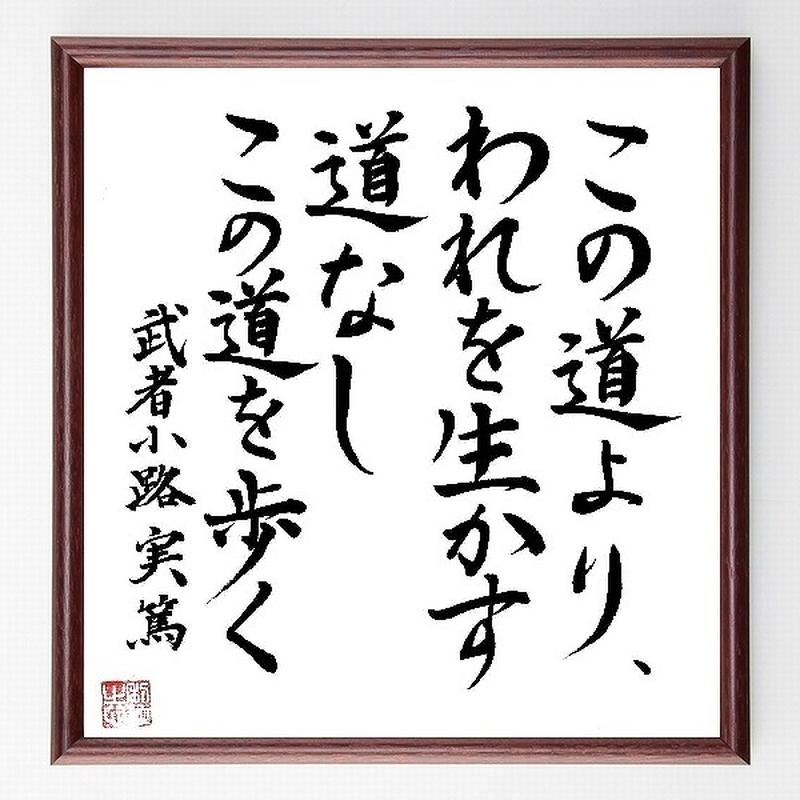 この道より、
われを生かす
道なし
この道を歩く
武者小路実篤